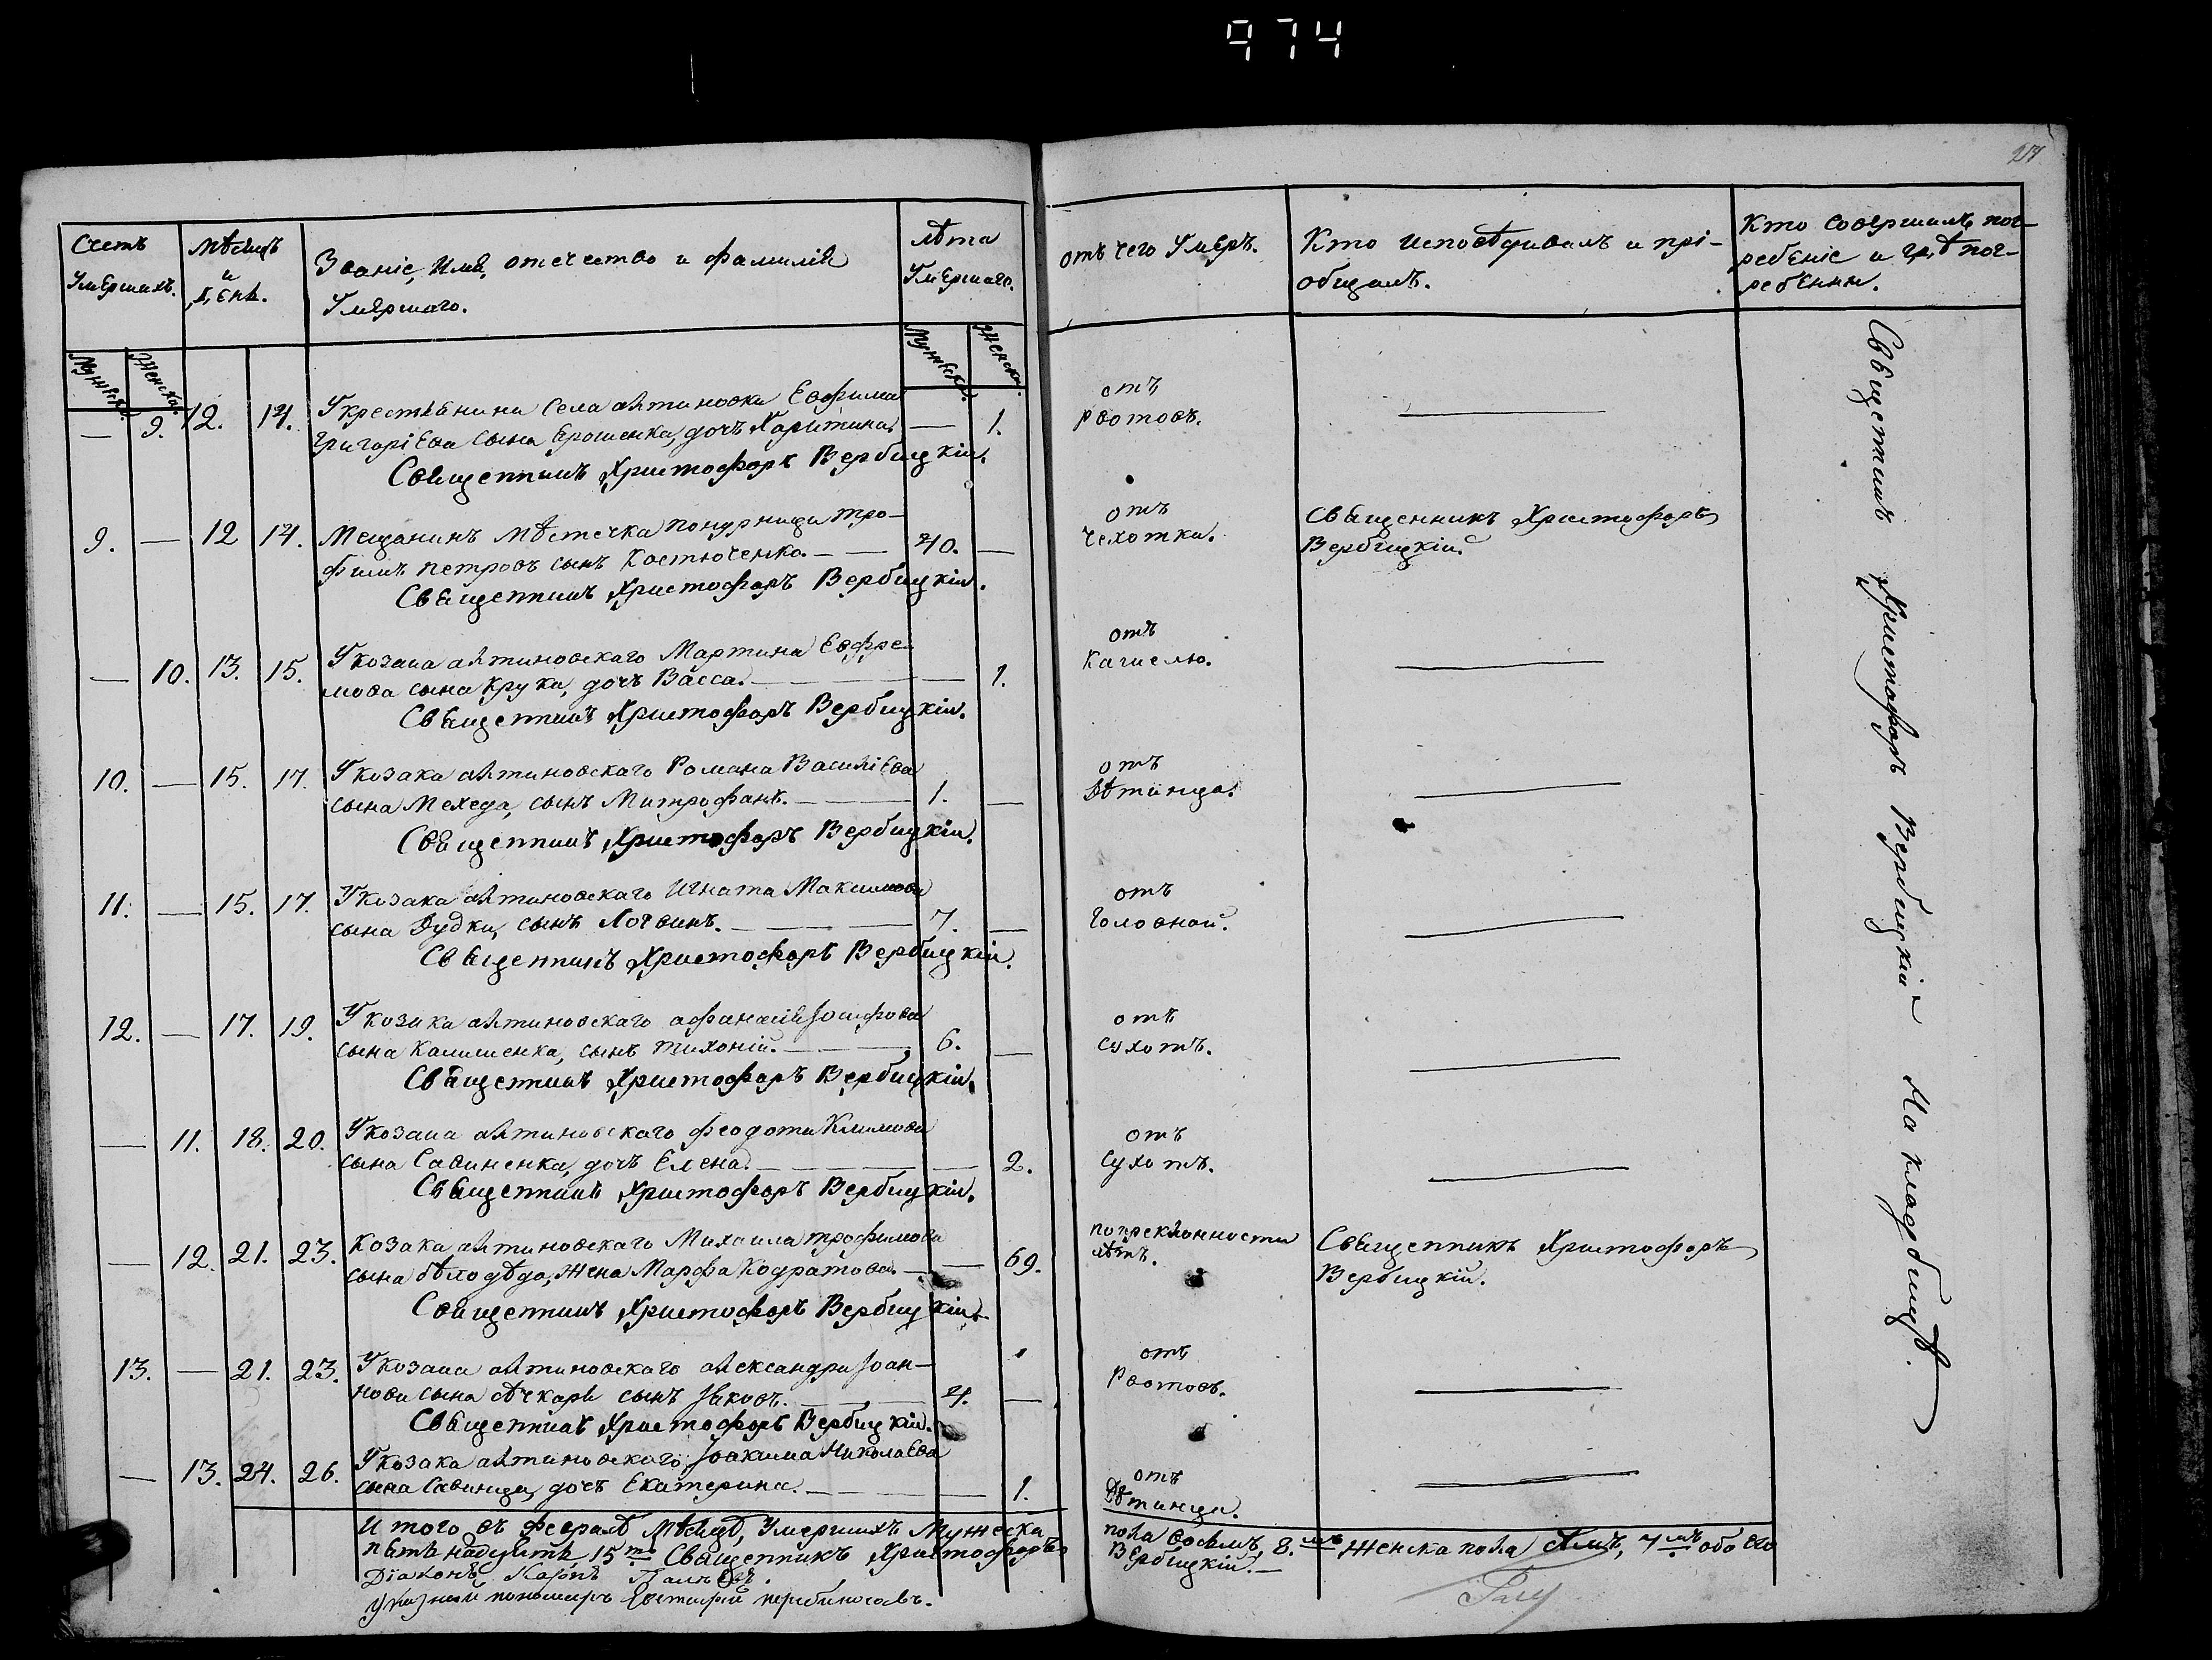 974
27
Счетъ
Умершихъ.
Мѣсяцъ
и
День.
Званіе, Имя, отечество и фамилія
Умершаго.
лѣта
Умершаго.
Мужеска.
Женска.
Мужеска.
Женска.
отъ чего Умеръ.
Кто исповѣдивалъ и прі-
общалъ.
Кто совершалъ пог-
ребеніе и гдѣ пог-
ребенны.
— 9. 12. 14. У крестьянина села алтиновки Евфима
Григоріева сына Ерошенка, дочь Харитина — 1.
Священникъ Христофоръ Вербицкій.
отъ
рвотовъ.
9. — 12 14. Мещанинъ мѣстечка понурници Тро-
фимъ петровъ сынъ Костюченко. — 40. —
Священникъ Христофоръ Вербицкій.
отъ
чехотки.
Священникъ Христофоръ
Вербицкій.
— 10. 13. 15. У козака алтиновскаго Мартина Евфре-
мова сына Крука, дочь Васса. — 1.
Священникъ Христофоръ Вербицкій.
отъ
Кагиелю.
10. — 15. 17. У козака алтиновскаго Романа Василіева
сына Мехеда, сынъ Митрофанъ. — 1. —
Священникъ Христофоръ Вербицкій.
отъ
Дѣтинца.
11. — 15. 17. У козака алтиновскаго Игната Максимова
сына Дудки, сынъ Логвинъ. — 7. —
Священникъ Христофоръ Вербицкій.
отъ
Головной.
12. — 17. 19. У козака алтиновскаго афанасія Іосифова
сына Калишенка, сынъ Тихоній. — 6. —
Священникъ Христофоръ Вербицкій.
отъ
сухотъ.
— 11. 18. 20. У козака алтиновскаго феодота Климова
сына Савиненка, дочь Елена. — 2.
Священникъ Христофоръ Вербицкій.
отъ
сухотъ.
— 12. 21. 23. Козака алтиновскаго Михаила трофимова
сына бѣлодѣда, жена Марфа Кодратова. — 69.
Священникъ Христофоръ Вербицкій.
попреклонности
лѣтъ.
Священникъ Христофоръ
Вербицкій.
13. — 21. 23. У козака алтиновскаго александра Іоан-
нова сына сынъ Яковъ. — 4. —
Священникъ Христофоръ Вербицкій.
отъ
Рвотовъ.
— 13. 24. 26. У козака алтиновскаго Іоакима Николаева
сына Савинца, дочь Екатерина. — 1.
отъ
Дѣтинца.
Итого въ Февралѣ мѣсяцѣ, Умершихъ Мужеска
пола восемъ, 8.мъ Женска пола семъ, 7мъ обоего
пятьнадцять, 15ть Священникъ Христофоръ
Вербицкій.—
Діаконъ
Указный пономарь
Священникъ Христофоръ Вербицкій На кладбищѣ.